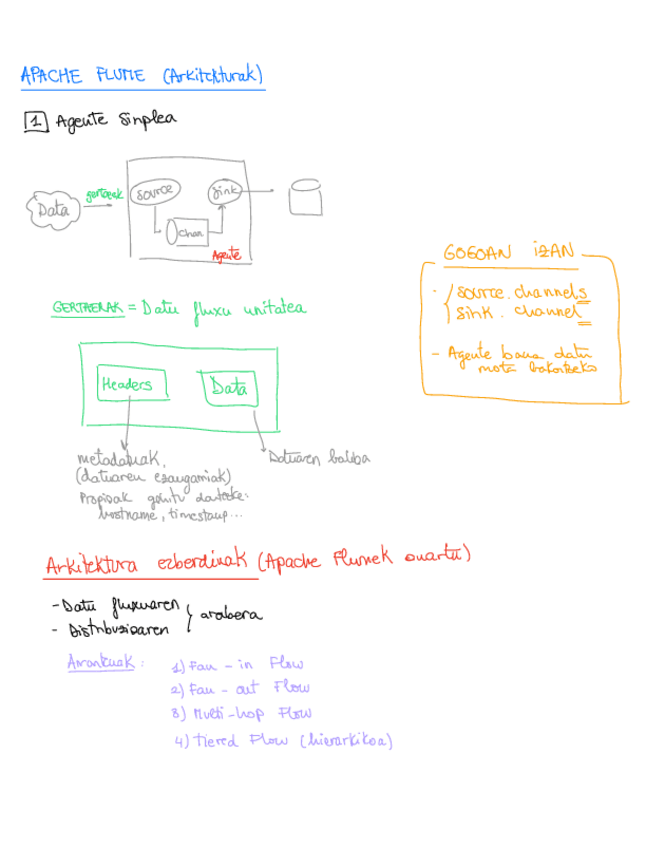 APACHE FLUME (Arkitekturak)
1 Agente Sinplea
Data
gertaerak
source
sink
Chan.
Agente
GERTAERAK = Datu fluxu unitatea
Headers
Data
metadatuak,
(datuaren ezaugarriak)
Propioak gehitu daitezke:
hostname, timestamp...
Datuaren balioa
GOGOAN IZAN
- source.channels
sink.channel
- Agente bana datu
mota bakoitzeko
Arkitektura ezberdinak (Apache Flumek onartu)
- Datu fluxuaren
- Distribuzioaren
arabera
Arrantuak:
1) Fan-in Flow
2) Fan-out Flow
3) Multi-hop Flow
4) Tiered Flow (hierarkikoa)